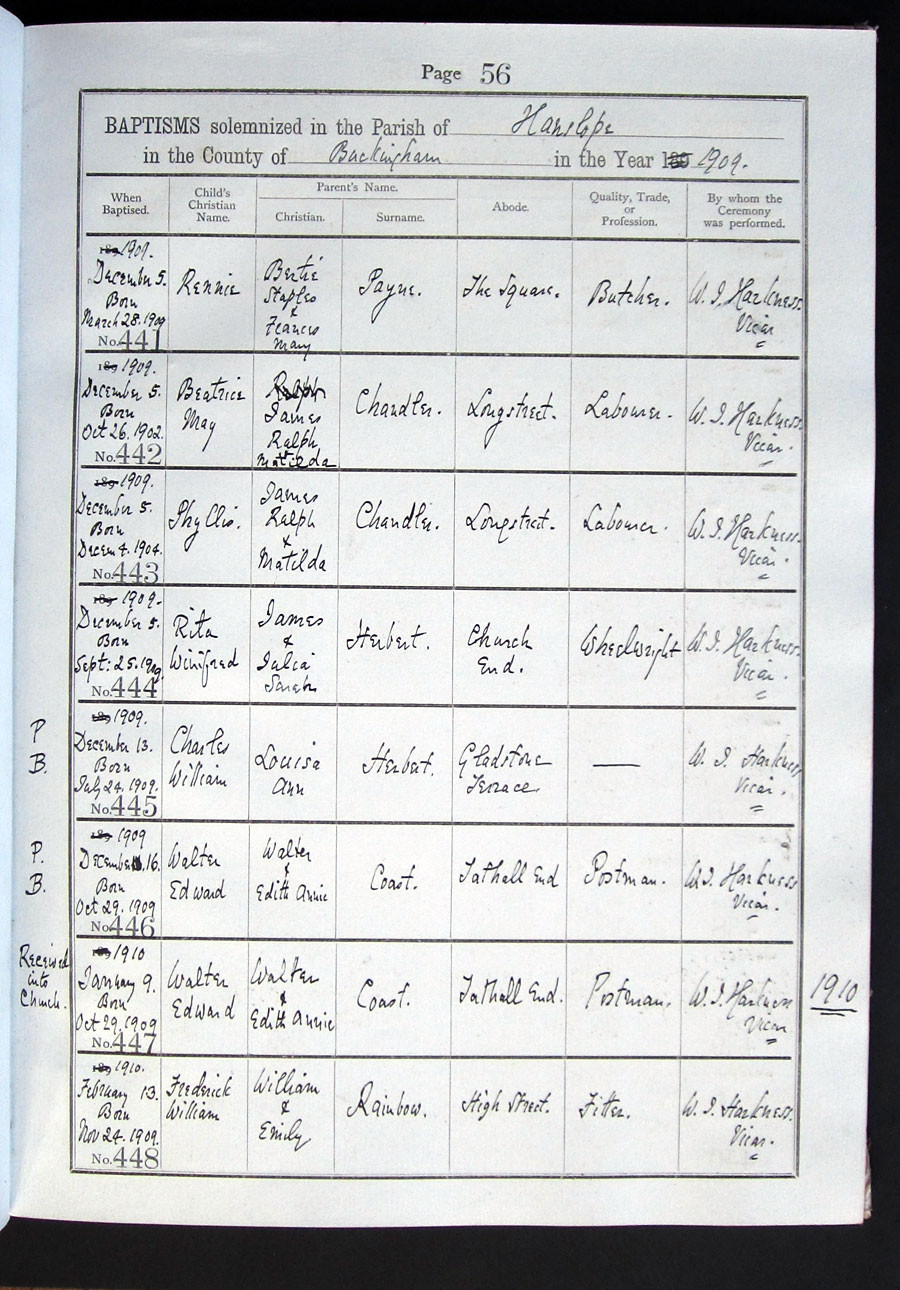 Page 56
BAPTISMS solemnized in the Parish of Hanslope
in the County of Buckingham in the Year 1909.
When Baptised.
Child's Christian Name.
Parent's Name.
Christian.
Surname.
Abode.
Quality, Trade, or Profession.
By whom the Ceremony was performed.
189 1909.
December 5.
Born
March 28. 1909
No. 441
Rennie
Bertie
Staples
&
Frances
Mary
Payne.
The Square.
Butcher.
W. J. Harkness.
Vicar
189 1909.
December 5.
Born
Oct 26. 1902.
No. 442
Beatrice
May
Ralph
James
Ralph
Matilda
Chandler.
Longstreet.
Labourer.
W. J. Harkness.
Vicar.
189 1909.
December 5.
Born
Decem 4. 1904.
No. 443
Phyllis.
James
Ralph
&
Matilda
Chandler.
Longstreet.
Labourer.
W. J. Harkness.
Vicar.
189 1909.
December 5.
Born
Sept: 25. 1909.
No. 444
Rita
Winifred
James
&
Julia
Sarah
Herbert.
Church
End.
Wheelwright
W. J. Harkness.
Vicar.
P
B.
189 1909.
December 13.
Born
July 24. 1909.
No. 445
Charles
William
Louisa
Ann
Herbert.
Gladstone
Terrace.
—
W. J. Harkness
Vicar.
P.
B.
189 1909
December 16.
Born
Oct 29. 1909
No. 446
Walter
Edward
Walter
&
Edith Annie
Coast.
Tathall End
Postman.
W. J. Harkness
Vicar.
Received
into
Church.
189 1910
January 9.
Born
Oct 29. 1909
No. 447
Walter
Edward
Walter
&
Edith Annie
Coast.
Tathall End.
Postman.
W. J. Harkness
Vicar
1910
189 1910.
February 13.
Born
Nov 24. 1909.
No. 448
Frederick
William
William
&
Emily
Rainbow.
High Street.
Fitter.
W. J. Harkness.
Vicar.